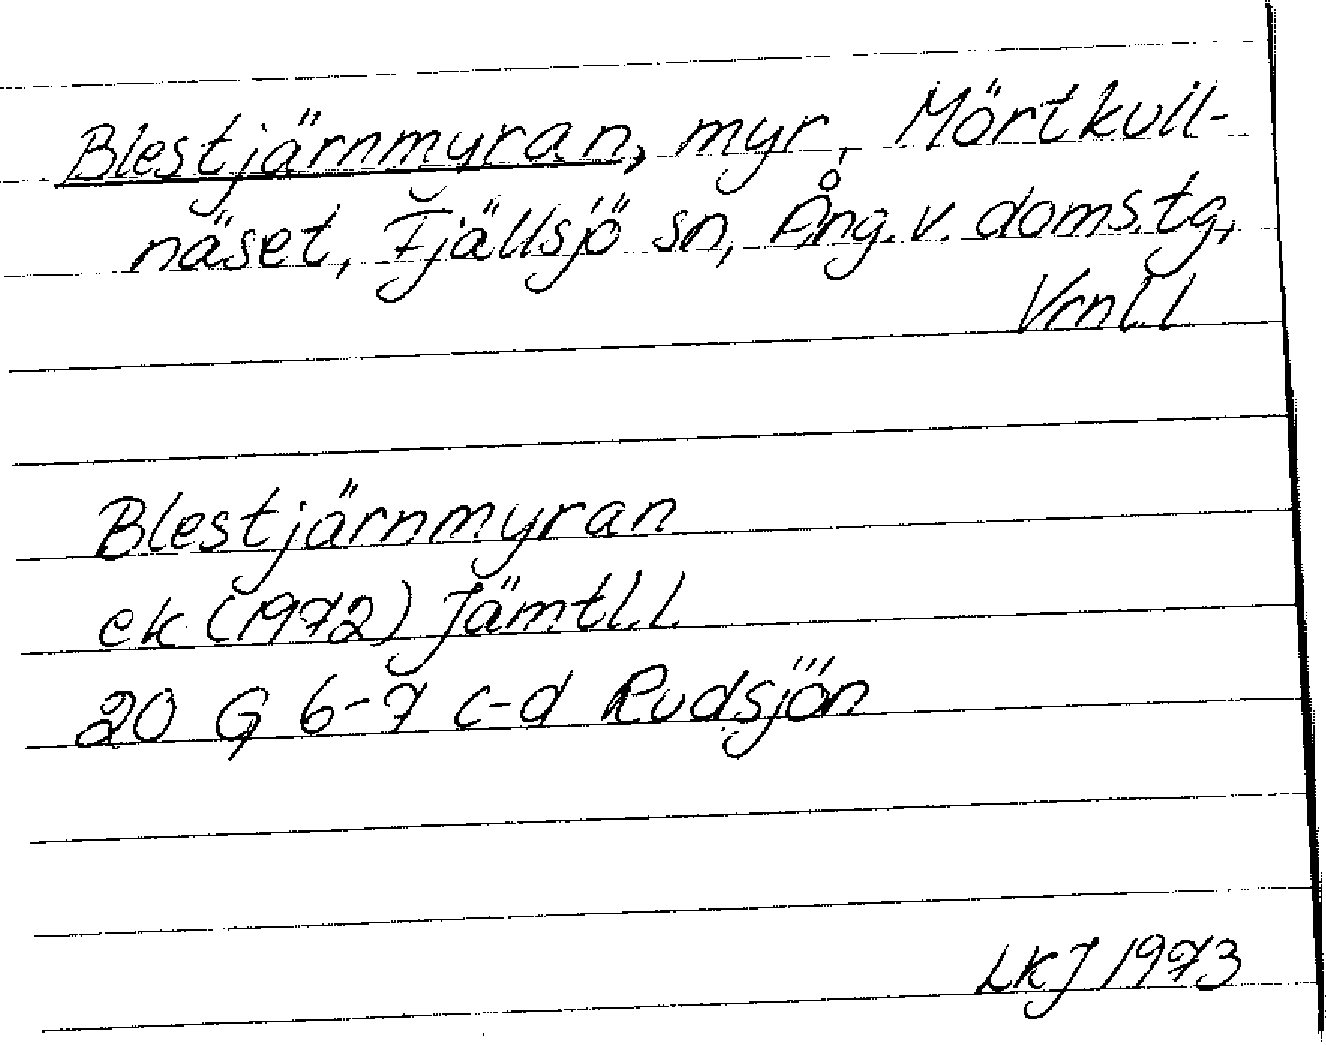 Blestjärnmyran, myr, Mörtkull-
näset, Fjällsjö sn, Ång. v. doms.tg,
Vrnl l
Blestjärnmyran
ek (1972) Jämtl. l
20 G 6-7 c-d Rudsjön
LKJ 1973